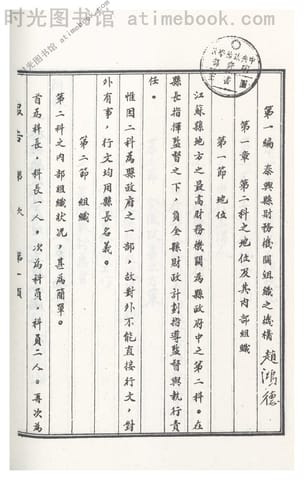 时光图书馆 atimebook.com
第一編 泰興縣財務機關組織之機構
趙鴻德
第一章 第二科之地位及其内部組織
第一節 地位
江蘇縣地方之最高財務機關為縣政府中之第二科。在
縣長指揮監督之下，負全縣財政計劃指導監督與執行責
任。
惟因二科為縣政府之一部，故對外不能直接行文，對
外有事，行文均用縣長名義。
第二節 組織
第二科之内部組織狀况，甚為簡單。
首為科長，科長一人。次為科員，科員二人。再次為
報告 第 次 第一頁
时光图书馆 atimebook.com